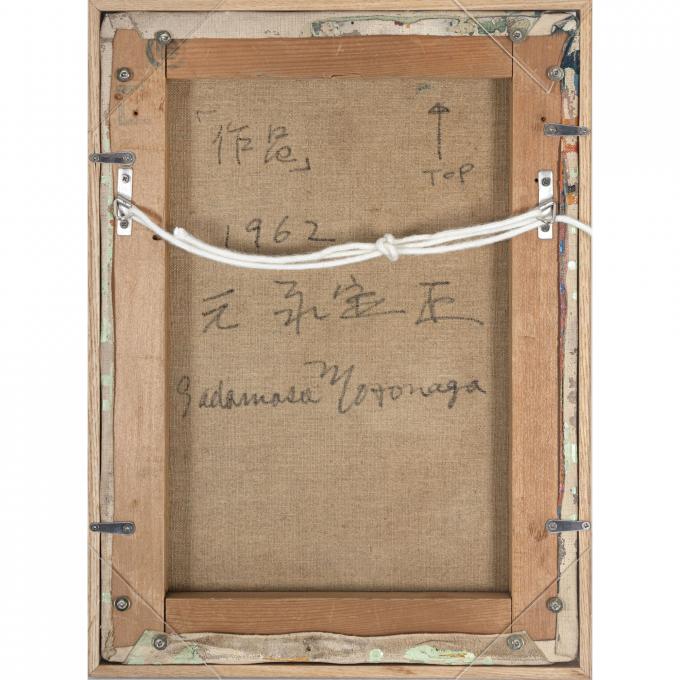 「作品」
↑
TOP
1962
元永定正
Sadamasa Motonaga